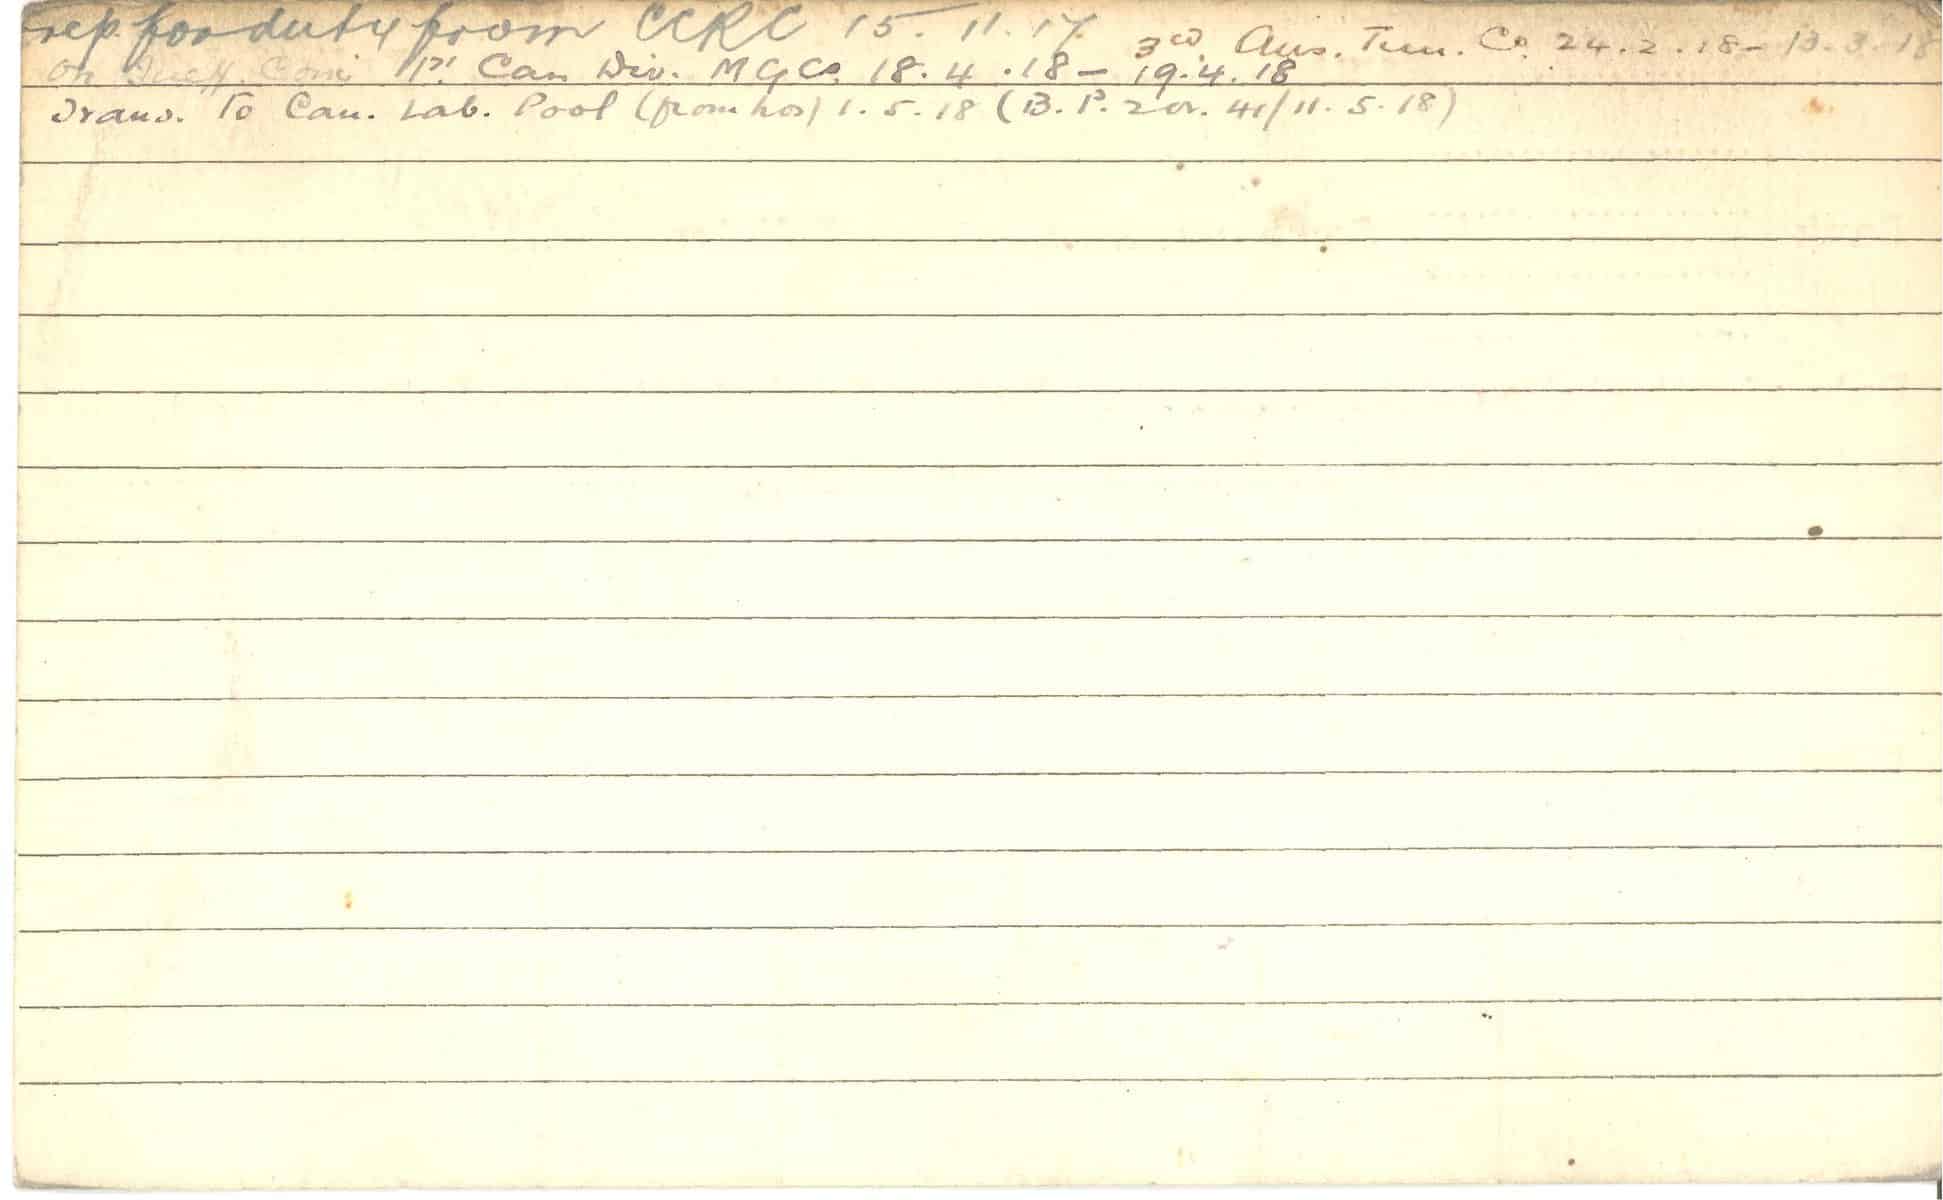 rep. for duty from CCRC 15.11.17 3rd Aus. Tun. Co. 24.2.18 - 13.3.18
on Ineff. 1st Can Div. M G Co. 18.4.18 - 19.4.18
Trans. To Can. Lab. Pool (from hos) 1.5.18 (B.P. 2 or. 41/11.5.18)